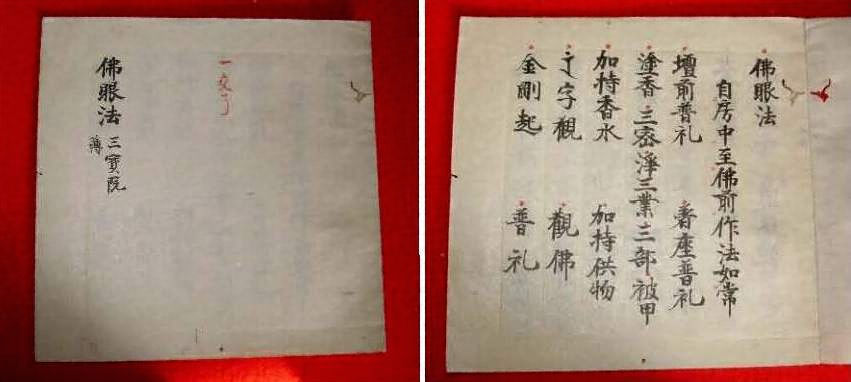 佛眼法 三寶院 薄
一交了
佛眼法
自房中至佛前作法如常
壇前普礼 着座普礼
塗香 三密 淨三業 三部 被甲
加持香水 加持供物
字觀 觀佛
金剛起 普礼